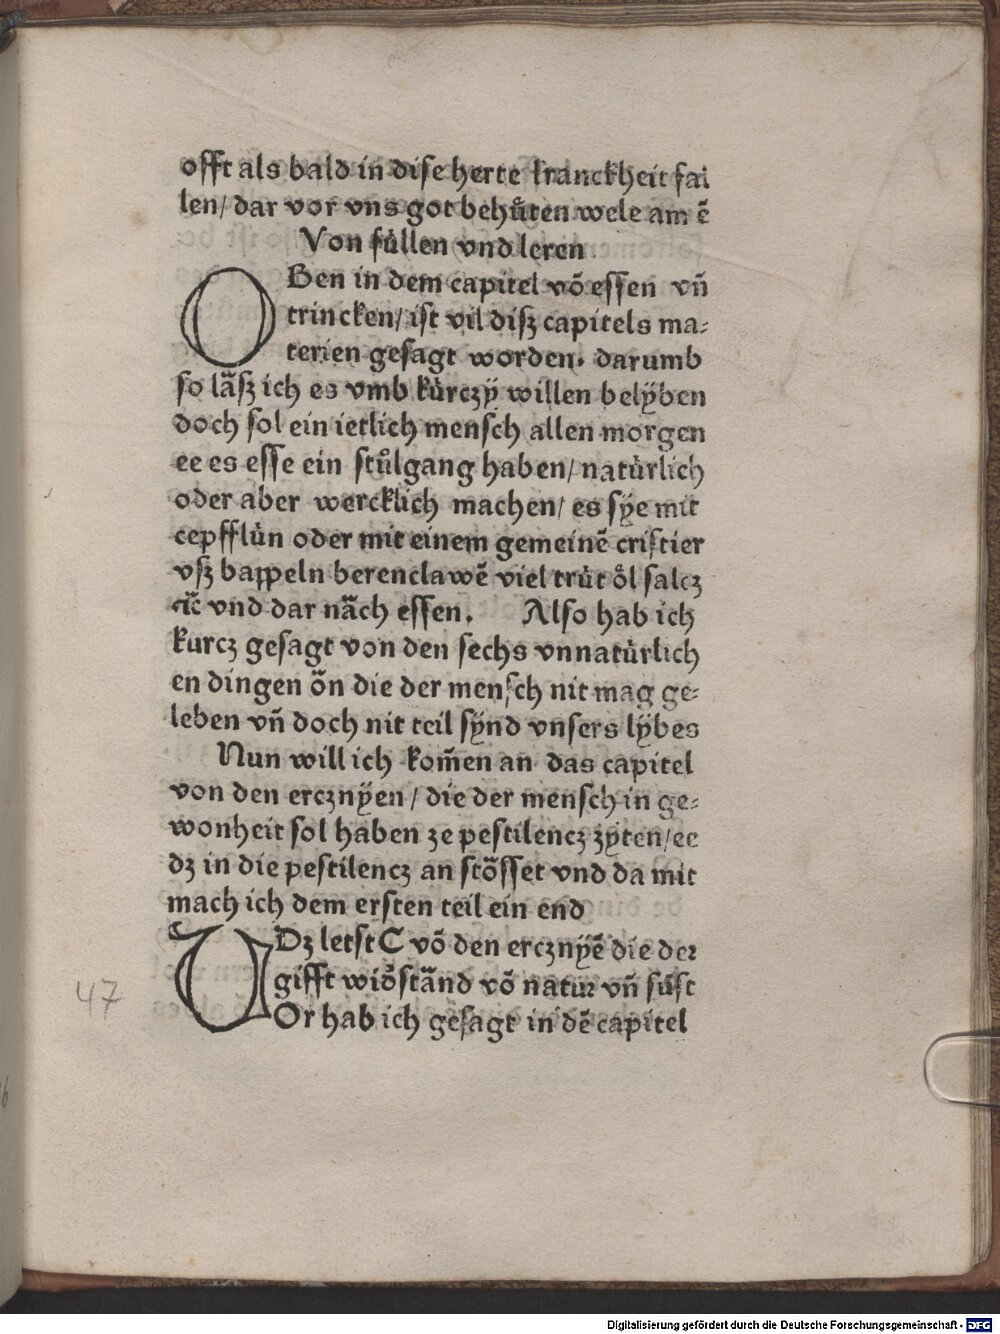 offt als bald in dise herte kranckheit fal
len/ dar vor vns got behu̍ten wele am ē
Von fu̍llen vnd leren
OBen in dem capitel võ essen vñ
trincken/ ist vil disz capitels ma⸗
terien gesagt worden. darumb
so lãsz ich es vmb ku̍rczÿ willen belÿben
doch sol ein ietlich mensch allen morgen
ee es esse ein stůlgang haben/ natu̍rlich
oder aber wercklich machen/ es sÿe mit
cepfflu̍n oder mit einem gemeinē cristier
vsz bappeln berenclawē viel tru̍t o̍l salcz
 vnd dar nãch essen. Also hab ich
kurcz gesagt von den sechs vnnatu̍rlich
en dingen õn die der mensch nit mag ge⸗
leben vñ doch nit teil sÿnd vnsers lÿbes
Nun will ich kom̃en an das capitel
von den ercznÿen / die der mensch in ge⸗
wonheit sol haben ze pestilencz zÿten/ ee
dz in die pestilencz an sto̍sset vnd da mit
mach ich dem ersten teil ein end
Dz letst C võ den ercznÿē die der
gifft wid̕stãnd võ natur vñ su̍st
VOr hab ich gesagt in dē capitel
47
Digitalisierung gefördert durch die Deutsche Forschungsgemeinschaft - DFG